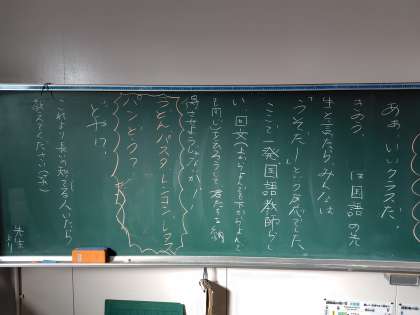 ああ、いいクラスだ。
きのう、 は国語の先
生と言ったら みんなは
「うそだー」という反応でした、
ここで一発国語教師らし
い、回文(上からよんでも下からよんで
も同じ文になる)をして君たちを納
得させようじゃないか!
うどんパスタ
パンどう?
どや!?
これより長いの知ってる人いたら
教えてください(笑)
先生
より